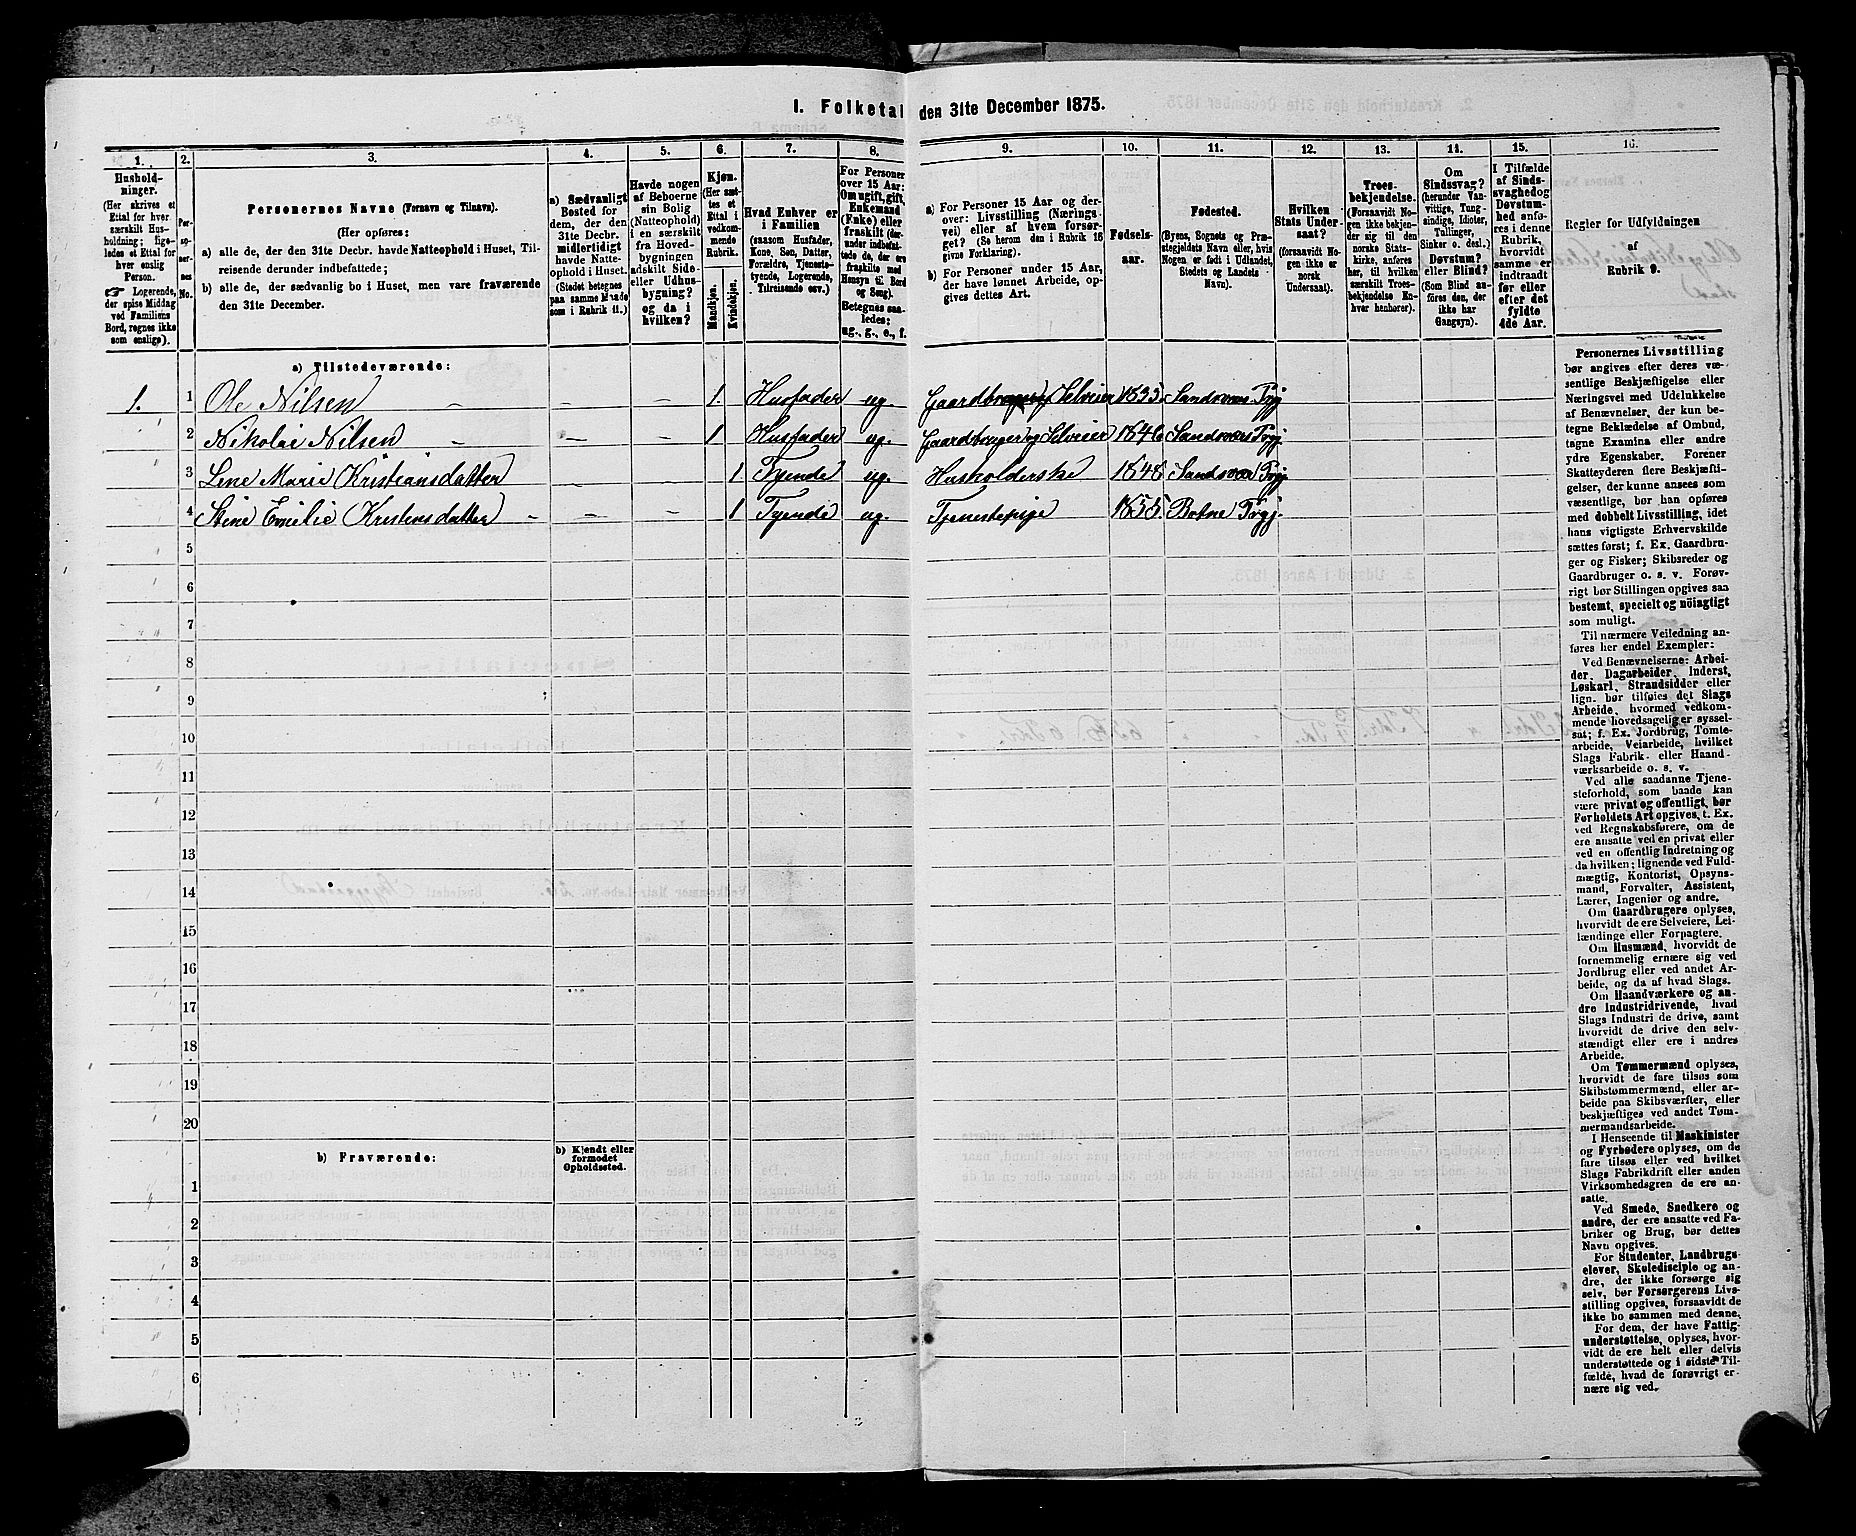 1. Folketal den 31te December 1875.
1. 2. 3. 4. 5. 6. 7. 8. 9. 10. 11. 12. 13. 14. 15. 16.
Hushold-
ninger.
(Her skrives et
Ettal for hver
særskilt Hus-
holdning; lige-
ledes et Ettal for
hver enslig
Person.
☞ Logerende,
der spise Middag
ved Familiens
Bord, regnes ikke
som enslige).
Per-
so-
ner-
nes
No.
Personernes Navne (Fornavn og Tilnavn).
(Her opføres:
a) alle de, der den 31te Decbr. havde Natteophold i Huset, Til-
reisende derunder indbefattede;
b) alle de, der sædvanlig bo i Huset, men vare fraværende
den 31te December.
a) Sædvanligt
Bosted for
dem, der den
31te Decbr.
midlertidigt
havde Natte-
ophold i Huset.
(Stedet betegnes
paa samme Maade
som i Rubrik 11.)
Havde nogen
af Beboerne
sin Bolig
(Natteophold)
i en særskilt
fra Hoved-
bygningen
adskilt Side-
eller Udhus-
bygning?
og da i
hvilken?
Kjøn.
(Her sæt-
tes et
Ettal i
vedkom-
mende
Rubrik.
Mandkjøn.
Kvindekjøn.
Hvad Enhver er
i Familien
(saasom Husfader,
Kone, Søn, Datter,
Forældre, Tjeneste-
tyende, Logerende,
Tilreisende osv.)
For Personer
over 15 Aar:
Om ugift, gift,
Enkemand
(Enke) eller
fraskilt (der-
under indbefat-
tede de, der ere
fraskilte med
Hensyn til Bord
og Seng).
Betegnes saa-
ledes:
ug., g., e., f.
a) For Personer 15 Aar og der-
over: Livsstilling (Nærings-
vei) eller af hvem forsør-
get? (Se herom den i Rubrik 16
givne Forklaring).
b) For Personer under 15 Aar,
der have lønnet Arbeide, op-
gives dettes Art.
Fødsels-
aar.
Fødested.
(Byens, Sognets og Præ-
stegjeldets Navn eller, hvis
Nogen er født i Udlandet,
Stedets og Landets
Navn).
Hvilken
Stats Under-
saat?
(forsaavidt No-
gen ikke er
norsk
Undersaat).
Troes-
bekjendelse.
(Forsaavidt No-
gen ikke bekjen-
der sig til den
norske Stats-
kirke, anføres
her, til hvilken
særskilt Troes-
bekjendelse En-
hver henhører).
Om
Sindssvag?
(herunder Van-
vittige, Tung-
sindige, Idioter,
Tullinger,
Sinker o. desl.)
Døvstum?
eller Blind?
(Som Blind an-
føres den, der
ikke har
Gangsyn).
I Tilfælde
af Sinds-
svaghed og
Døvstum-
hed anfø-
res i denne
Rubrik,
hvorvidt
samme er
indtraadt
før eller
efter det
fyldte
4de Aar.
Regler for Udfyldningen
af
Rubrik 9.
a) Tilstedeværende:
1. 1 Ole Nilsen – – – 1. Husfader ug. Gaardbruger Selveier 1833. Sandsvær Prgj
2 Nikolai Nilsen – – – 1 Husfader ug. Gaardbruger og Selveier 1846 Sandsvær Prgj.
3 Lene Marie Kristiansdatter – – 1 Tyende ug. Husholderske 1848 Sandsvær Prgj
4 Stine Emilie Kristensdatter – – – 1 Tyende ug. Tjenestepige 1855. Botne Prgj.
5
6
7
8
9
10
11
12
13
14
15
16
17
18
19
20
b) Fraværende:
b) Kjendt eller
formodet
Opholdssted.
1
2
3
4
5
6
Personernes Livsstilling
bør angives efter deres væ-
sentlige Beskjæftigelse eller
Næringsvei med Udelukkelse
af Benævnelser, der kun be-
tegne Beklædelse af Ombud,
tagne Examina eller andre
ydre Egenskaber. Forener
Skatteyderen flere Beskjæfti-
gelser, der kunne ansees som
væsentlige, bør han opføres
med dobbelt Livsstilling, idet
hans vigtigste Erhvervskilde
sættes først; f. Ex. Gaardbru-
ger og Fisker; Skibsreder og
Gaardbruger o. s. v. Forøv-
rigt bør Stillingen opgives saa
bestemt, specielt og nøiagtigt
som muligt.
Til nærmere Veiledning an-
føres her endel Exempler:
Ved Benævnelserne: Arbei-
der, Dagarbeider, Inderst,
Løskarl, Strandsidder eller
lign. bør tilføies det Slags
Arbeide, hvormed vedkom-
mende hovedsagelig er syssel-
sat; f. Ex. Jordbrug, Tomte-
arbeide, Veiarbeide, hvilket
Slags Fabrik- eller Haand-
værksarbeide o. s. v.
Ved alle saadanne Tjene-
steforhold, som baade kan
være privat og offentligt, bør
Forholdets Art opgives, t. Ex.
ved Regnskabsførere, om de
ere ansatte ved en privat eller
ved en offentlig Indretning og
da hvilken; lignende ved Fuld-
mægtig, Kontorist, Opsyns-
mand, Forvalter, Assistent,
Lærer, Ingeniør og andre.
Om Gaardbrugere oplyses,
hvorvidt de ere Selveiere, Lei-
lændinge eller Forpagtere.
Om Husmænd, hvorvidt de
fornemmelig ernære sig ved
Jordbrug eller ved andet Ar-
beide, og da af hvad Slags.
Om Haandværkere og an-
dre Industridrivende, hvad
Slags Industri de drive, samt
hvorvidt de drive den selv-
stændigt eller ere i andres
Arbeide.
Om Tømmermænd oplyses,
hvorvidt de fare tilsøs som
Skibstømmermænd, eller ar-
beide paa Skibsværfter, eller
beskjæftiges ved andet Tøm-
mermandsarbeide.
I Henseende til Maskinister
og Fyrbødere oplyses, om de
fare tilsøs eller ved hvilket
Slags Fabrikdrift eller anden
Virksomhedsgren de ere an-
satte.
Ved Smede, Snedkere og
andre, der ere ansatte ved Fa-
briker og Brug, bør dettes
Navn opgives.
For Studenter, Landbrugs-
elever, Skoledisciple og an-
dre, der ikke forsørge sig
selv, bør Forsørgerens Livs-
stilling opgives, forsaavidt de
ikke bo sammen med denne.
For dem, der have Fattig-
understøttelse, oplyses, hvor-
vidt de ere helt eller delvis
understøttede og i sidste Til-
fælde, hvad de forøvrigt er-
nære sig ved.